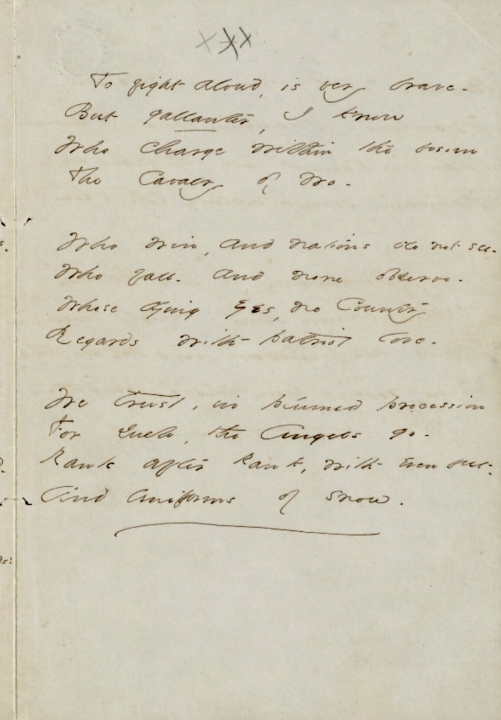 xxx
To fight aloud, is very brave -
But gallanter, I know
Who charge within the bosom
The Cavalry of Wo -
Who win, and nations do not see -
Who fall - and none observe -
Whose dying eyes, no Country
Regards with patriot love -
We trust, in plumed procession
For such, the Angels go -
Rank after Rank, with even feet -
And Uniforms of snow.